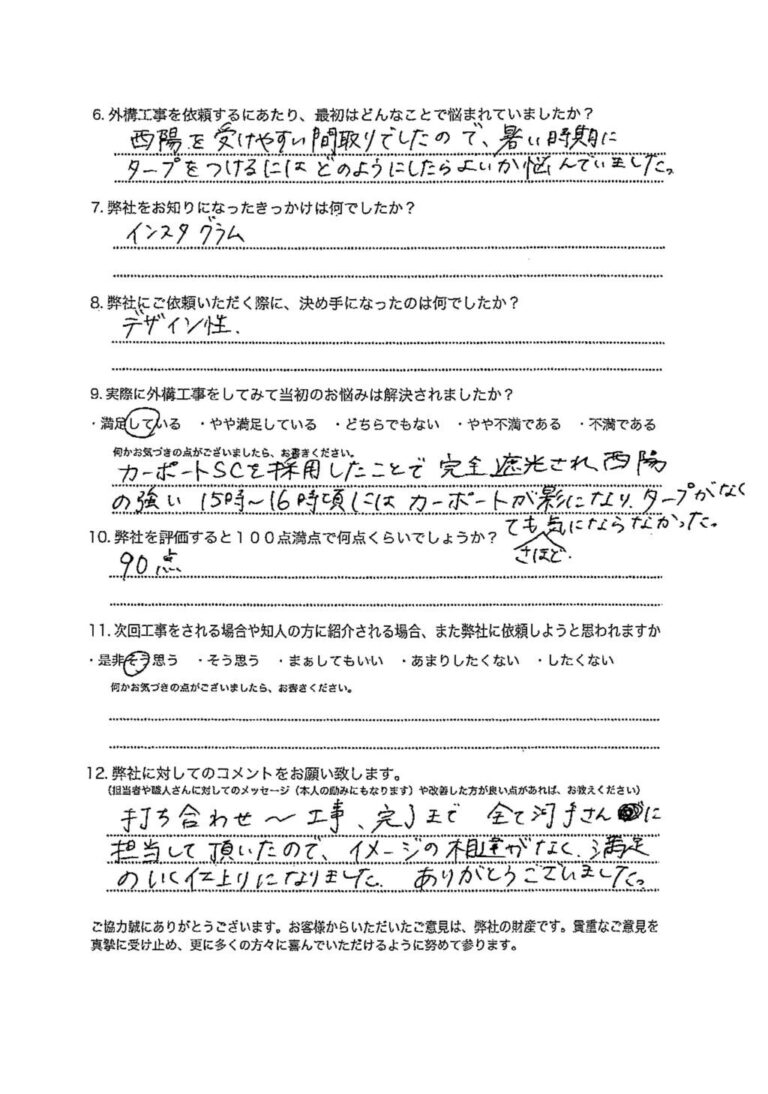 6. 外構工事を依頼するにあたり、最初はどんなことで悩まれていましたか？
西陽を受けやすい間取りでしたので、暑い時期に
タープをつけるにはどのようにしたらよいか悩んでいました。
7. 弊社をお知りになったきっかけは何でしたか？
インスタグラム
8. 弊社にご依頼いただく際に、決め手になったのは何でしたか？
デザイン性.
9. 実際に外構工事をしてみて当初のお悩みは解決されましたか？
・満足している ・やや満足している ・どちらでもない ・やや不満である ・不満である
何かお気づきの点がございましたら、お書きください。
カーポートSCを採用したことで完全遮光され、西陽
の強い15時〜16時頃にはカーポートが影になり、タープがなく
ても気にならなかった。
さほど.
10. 弊社を評価すると１００点満点で何点くらいでしょうか？
90点
11. 次回工事をされる場合や知人の方に紹介される場合、また弊社に依頼しようと思われますか
・是非そう思う ・そう思う ・まぁしてもいい ・あまりしたくない ・したくない
何かお気づきの点がございましたら、お書きください。
12. 弊社に対してのコメントをお願い致します。
（担当者や職人さんに対してのメッセージ（本人の励みにもなります）や改善した方が良い点があれば、お教えください）
打ち合わせ〜工事、完了まで 全て河手さんに
担当して頂いたので、イメージの相違がなく、満足
のいく仕上りになりました. ありがとうございました。
ご協力誠にありがとうございます。お客様からいただいたご意見は、弊社の財産です。貴重なご意見を
真摯に受け止め、更に多くの方々に喜んでいただけるように努めて参ります。